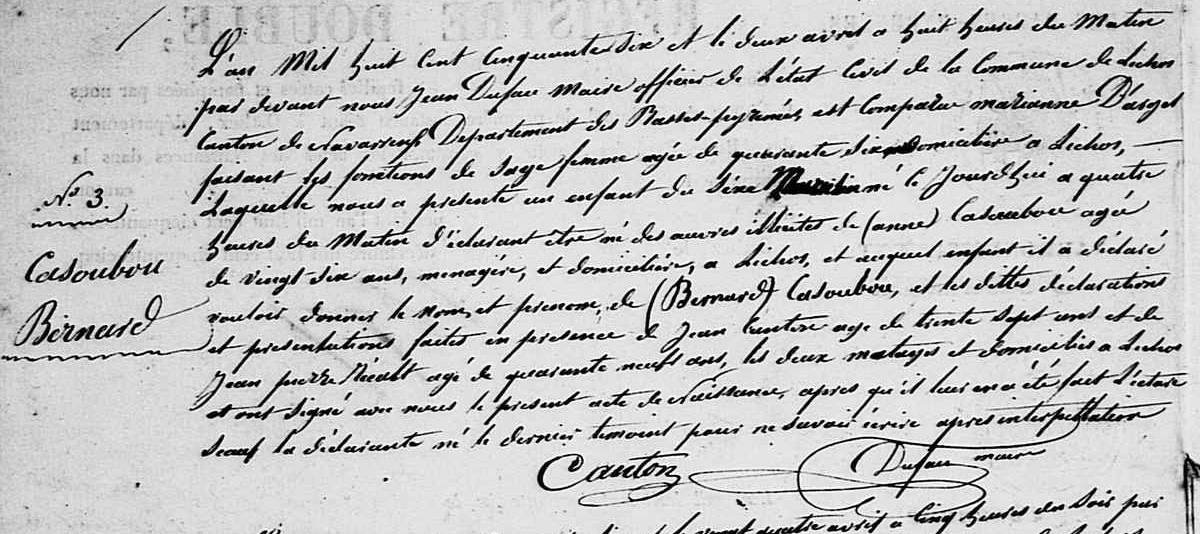 L'an Mil huit cent cinquante six et le deux avril a huit heures du Matin
par devant nous Jean Dufau Maire officier de L'état Civil de la Commune de Lichos
Canton de Navarrenx Departement des Basses-pyrenées, est Comparue marianne D'arget
faisant les fonctions de sage femme agée de quarante six domicilière a Lichos,
Laquelle nous a presenté un enfant du séxe né le Jourdhui a quatre
heures du Matin d'éclarant être né des œuvres illicites de (anne) Casoubou agée
N.o 3.
de vingt six ans, menagère, et domicilière, a Lichos, et auquel enfant il a déclaré
Casoubou
vouloir donner le nom, et prenom, de (Bernard) Casoubou, et les dittes déclarations
Bernard
et présentations faites en présence de Jean Canton age de trente sept ans et de
Jean pierre agé de quarante neuf ans, les deux et domiciliés a Lichos
et ont signé avec nous le present acte de Naissance, apres qu'il leur en a été fait Lecture
sauf la déclarante né le dernier temoint pour ne savoir écrire apres interpellation
Canton
Dufau maire
vingt quatre avril a Cinq heures du Soir par